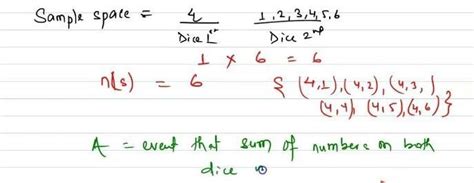 Sample space = 4 1,2,3,4,5,6
Dice 1st Dice 2nd
1 × 6 = 6
n(s) = 6 { (4,1),(4,2),(4,3,)
(4,4) (4,5),(4,6)}
A = event that sum of numbers on both
dice